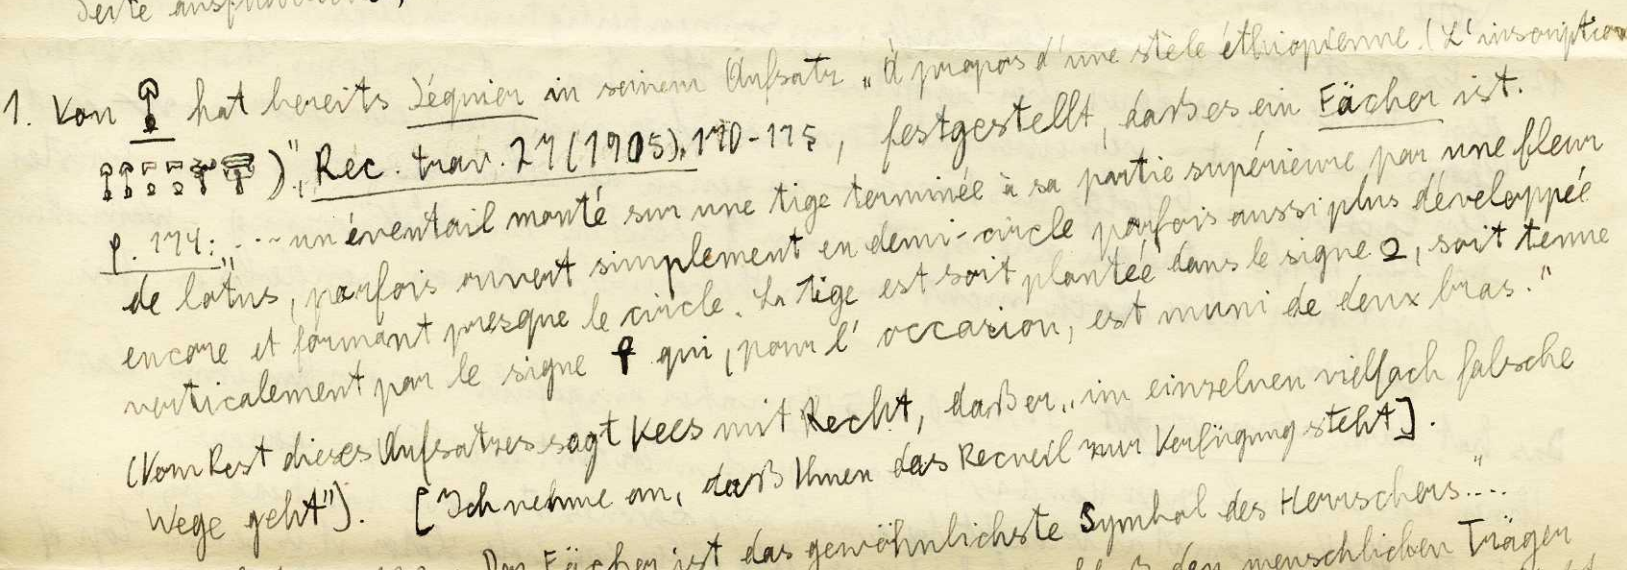 Seite
1. Von hat bereits Jéquier in seinem Aufsatz „À propos d'une stèle éthiopienne (L'inscription
)", Rec. trav. 27 (1905), 170-175, festgestellt, daß es ein Fächer ist.
p. 174: „... un éventail monté sur une tige terminée à sa partie supérieure par une fleur
de lotus, parfois ouvert simplement en demi-circle parfois aussi plus développée
encore et formant presque le circle. La tige est soit plantée dans le signe Q, soit tenue
verticalement par le signe qui, pour l'occasion, est muni de deux bras."
(Vom Rest dieses Aufsatzes sagt Kees mit Recht, daß er „im einzelnen vielfach falsche
Wege geht"). [Ich nehme an, daß Ihnen das Recueil zur Verfügung steht].
Der Fächer ist das gewöhnlichste Symbol des Herrschers...."
den menschlichen Träger